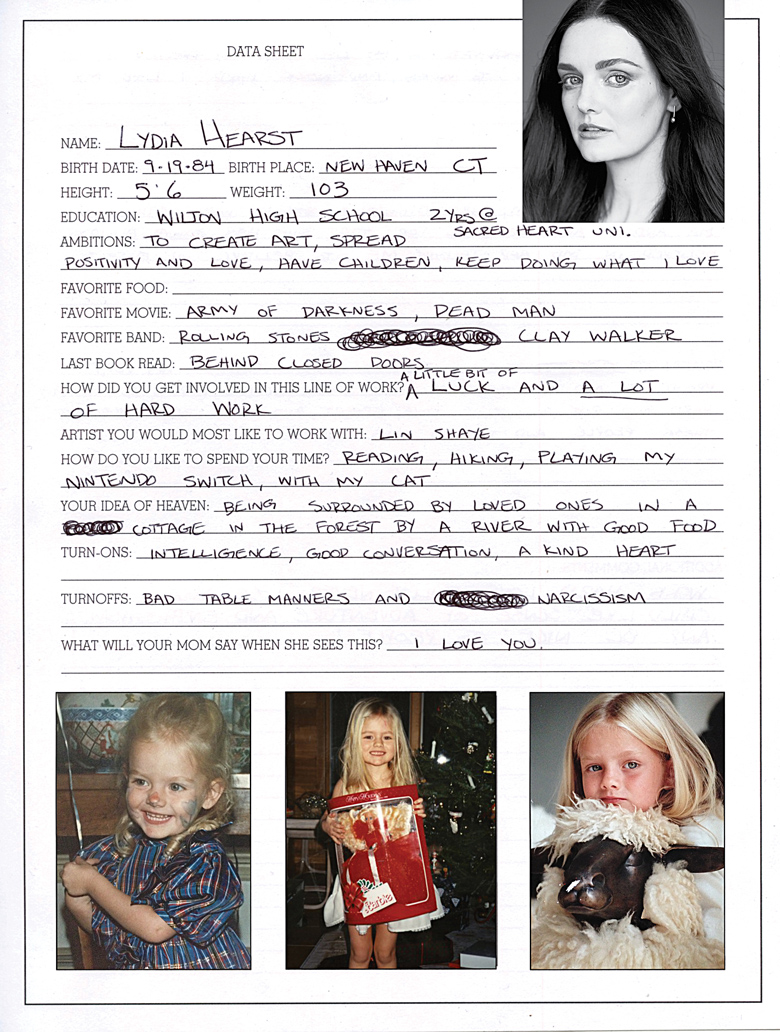 DATA SHEET
NAME: LYDIA HEARST
BIRTH DATE: 9-19-84 BIRTH PLACE: NEW HAVEN CT
HEIGHT: 5'6 WEIGHT: 103
EDUCATION: WILTON HIGH SCHOOL 2YRS @
SACRED HEART UNI.
AMBITIONS: TO CREATE ART, SPREAD
POSITIVITY AND LOVE, HAVE CHILDREN, KEEP DOING WHAT I LOVE
FAVORITE FOOD:
FAVORITE MOVIE: ARMY OF DARKNESS, DEAD MAN
FAVORITE BAND: ROLLING STONES CLAY WALKER
LAST BOOK READ: BEHIND CLOSED DOORS
A LITTLE BIT OF
HOW DID YOU GET INVOLVED IN THIS LINE OF WORK? LUCK AND A LOT
OF HARD WORK
ARTIST YOU WOULD MOST LIKE TO WORK WITH: LIN SHAYE
HOW DO YOU LIKE TO SPEND YOUR TIME? READING, HIKING, PLAYING MY
NINTENDO SWITCH, WITH MY CAT
YOUR IDEA OF HEAVEN: BEING SURROUNDED BY LOVED ONES IN A
COTTAGE IN THE FOREST BY A RIVER WITH GOOD FOOD
TURN-ONS: INTELLIGIENCE, GOOD CONVERSATION, A KIND HEART
TURNOFFS: BAD TABLE MANNERS AND NARCISSISM
WHAT WILL YOUR MOM SAY WHEN SHE SEES THIS? I LOVE YOU.
Barbie